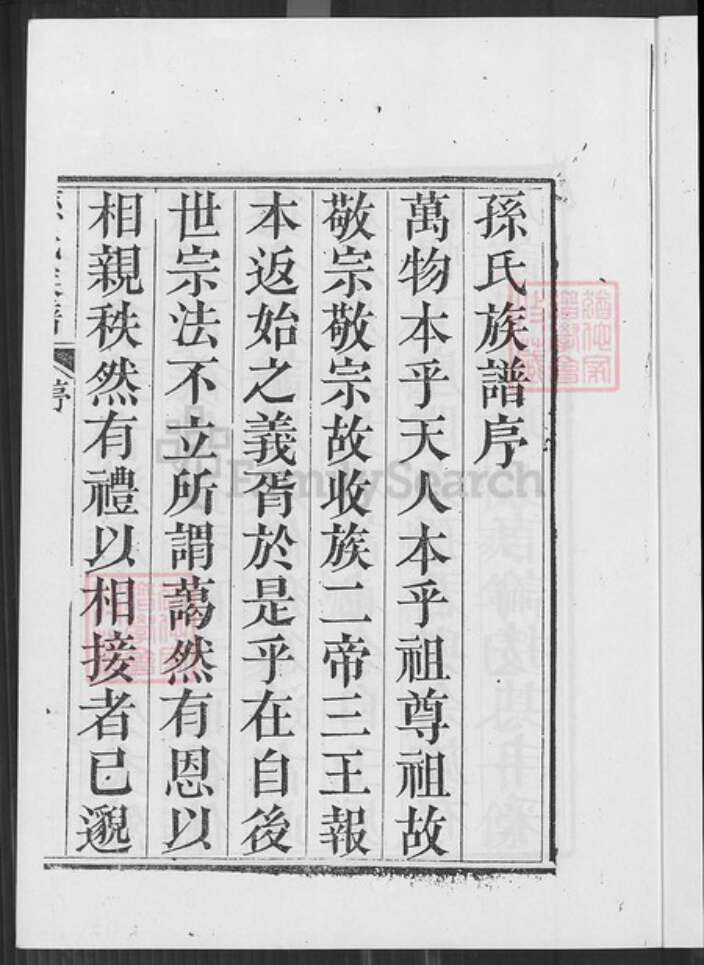 孫氏族譜序
萬物本乎天人本乎祖尊祖故
敬宗敬宗故收族二帝三王報
本返始之義胥於是乎在自後
世宗法不立所謂藹然有恩以
相親秩然有禮以相接者已邈
序
FamilySearch